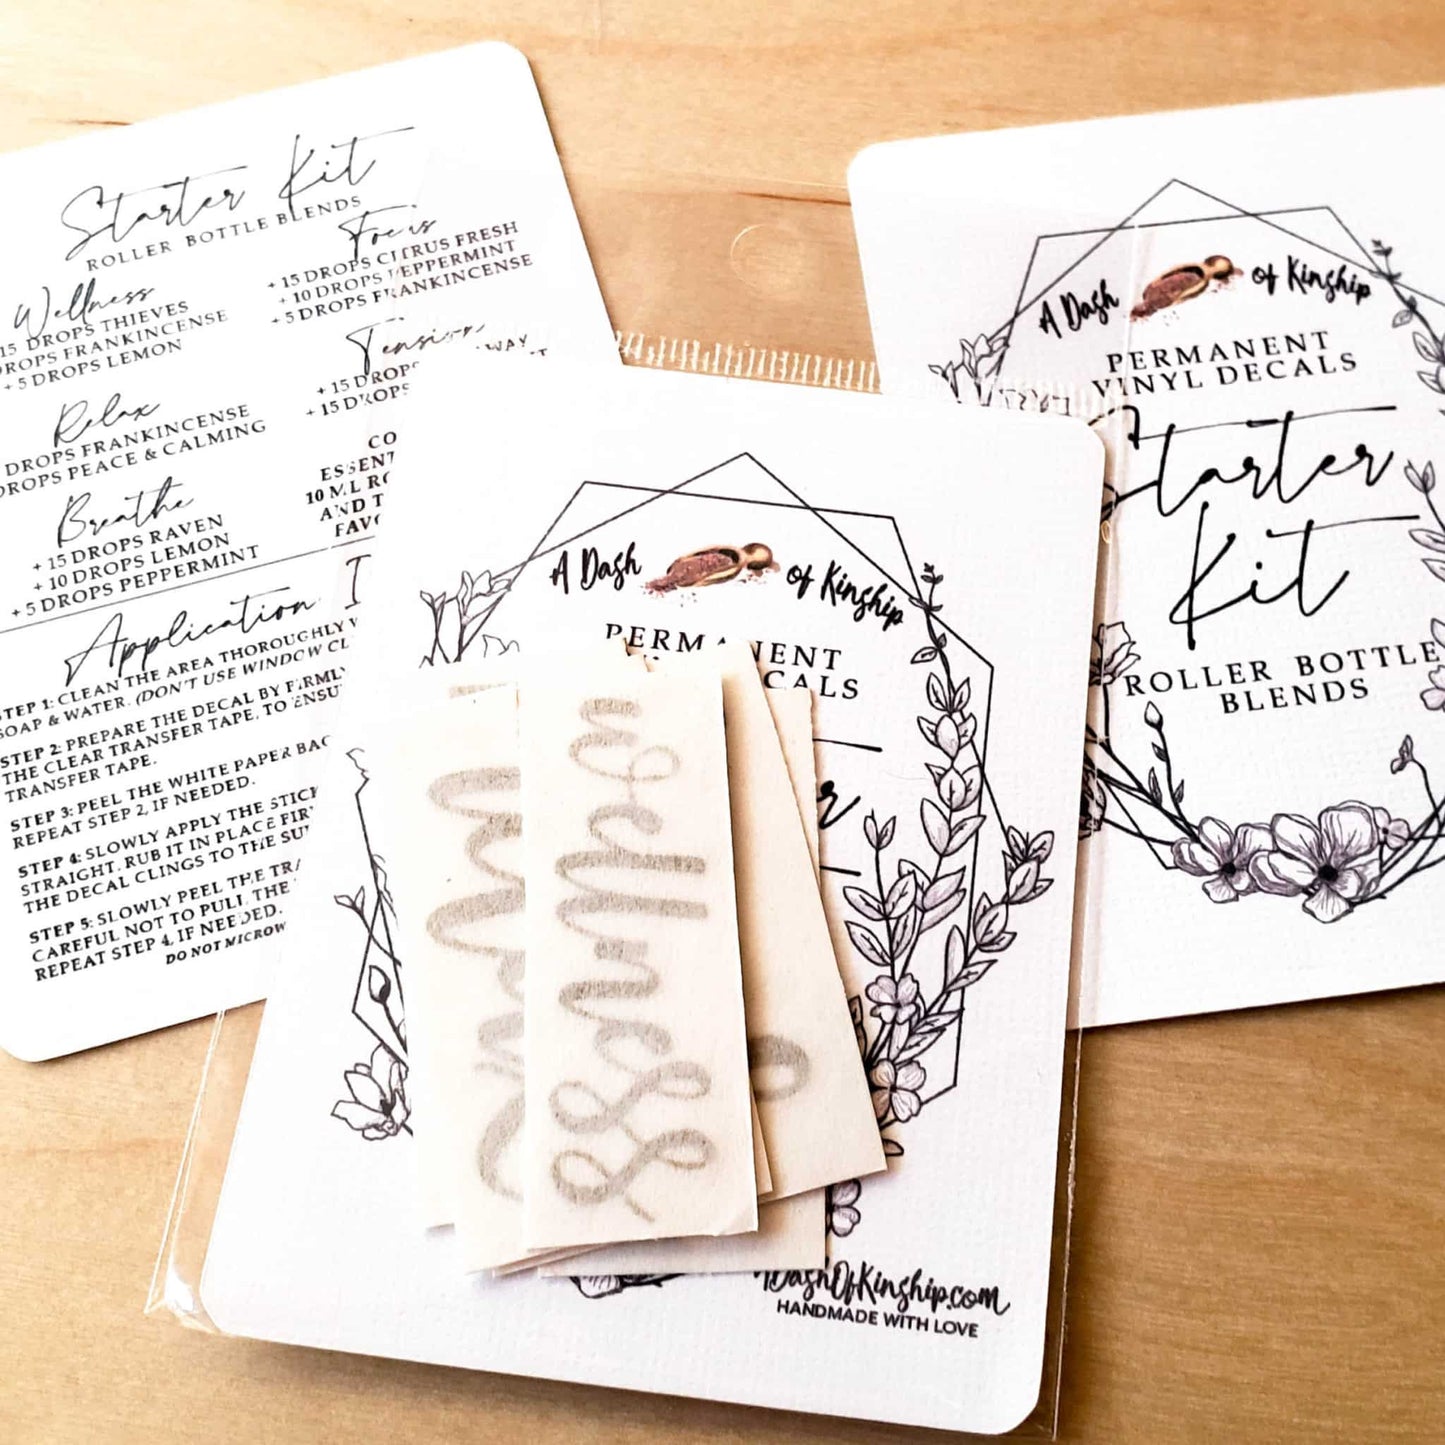 Starter Kit
ROLLER BOTTLE BLENDS
Wellness
15 DROPS THIEVES
DROPS FRANKINCENSE
+ 5 DROPS LEMON
Relax
DROPS FRANKINCENSE
DROPS PEACE & CALMING
Breathe
+ 15 DROPS RAVEN
+ 10 DROPS LEMON
+ 5 DROPS PEPPERMINT
Focus
+ 15 DROPS CITRUS FRESH
+ 10 DROPS PEPPERMINT
+ 5 DROPS FRANKINCENSE
Tension
+ 15 DROPS
+ 15 DROPS
10 ML
AND
Application
STEP 1: CLEAN THE AREA THOROUGHLY
SOAP & WATER. (DON'T USE WINDOW
STEP 2: PREPARE THE DECAL BY FIRMLY
THE CLEAR TRANSFER TAPE, TO
TRANSFER TAPE.
STEP 3: PEEL THE WHITE PAPER
REPEAT STEP 2, IF NEEDED.
STEP 4: SLOWLY APPLY THE
STRAIGHT. RUB IT IN PLACE
THE DECAL CLINGS TO THE
STEP 5: SLOWLY PEEL THE
CAREFUL NOT TO PULL THE
REPEAT STEP 4, IF NEEDED.
DO NOT
A Dash of Kinship
PERMANENT
VINYL DECALS
Starter
Kit
ROLLER BOTTLE
BLENDS
A Dash of Kinship
PERMANENT
wellness
ADashOfKinship.com
HANDMADE WITH LOVE